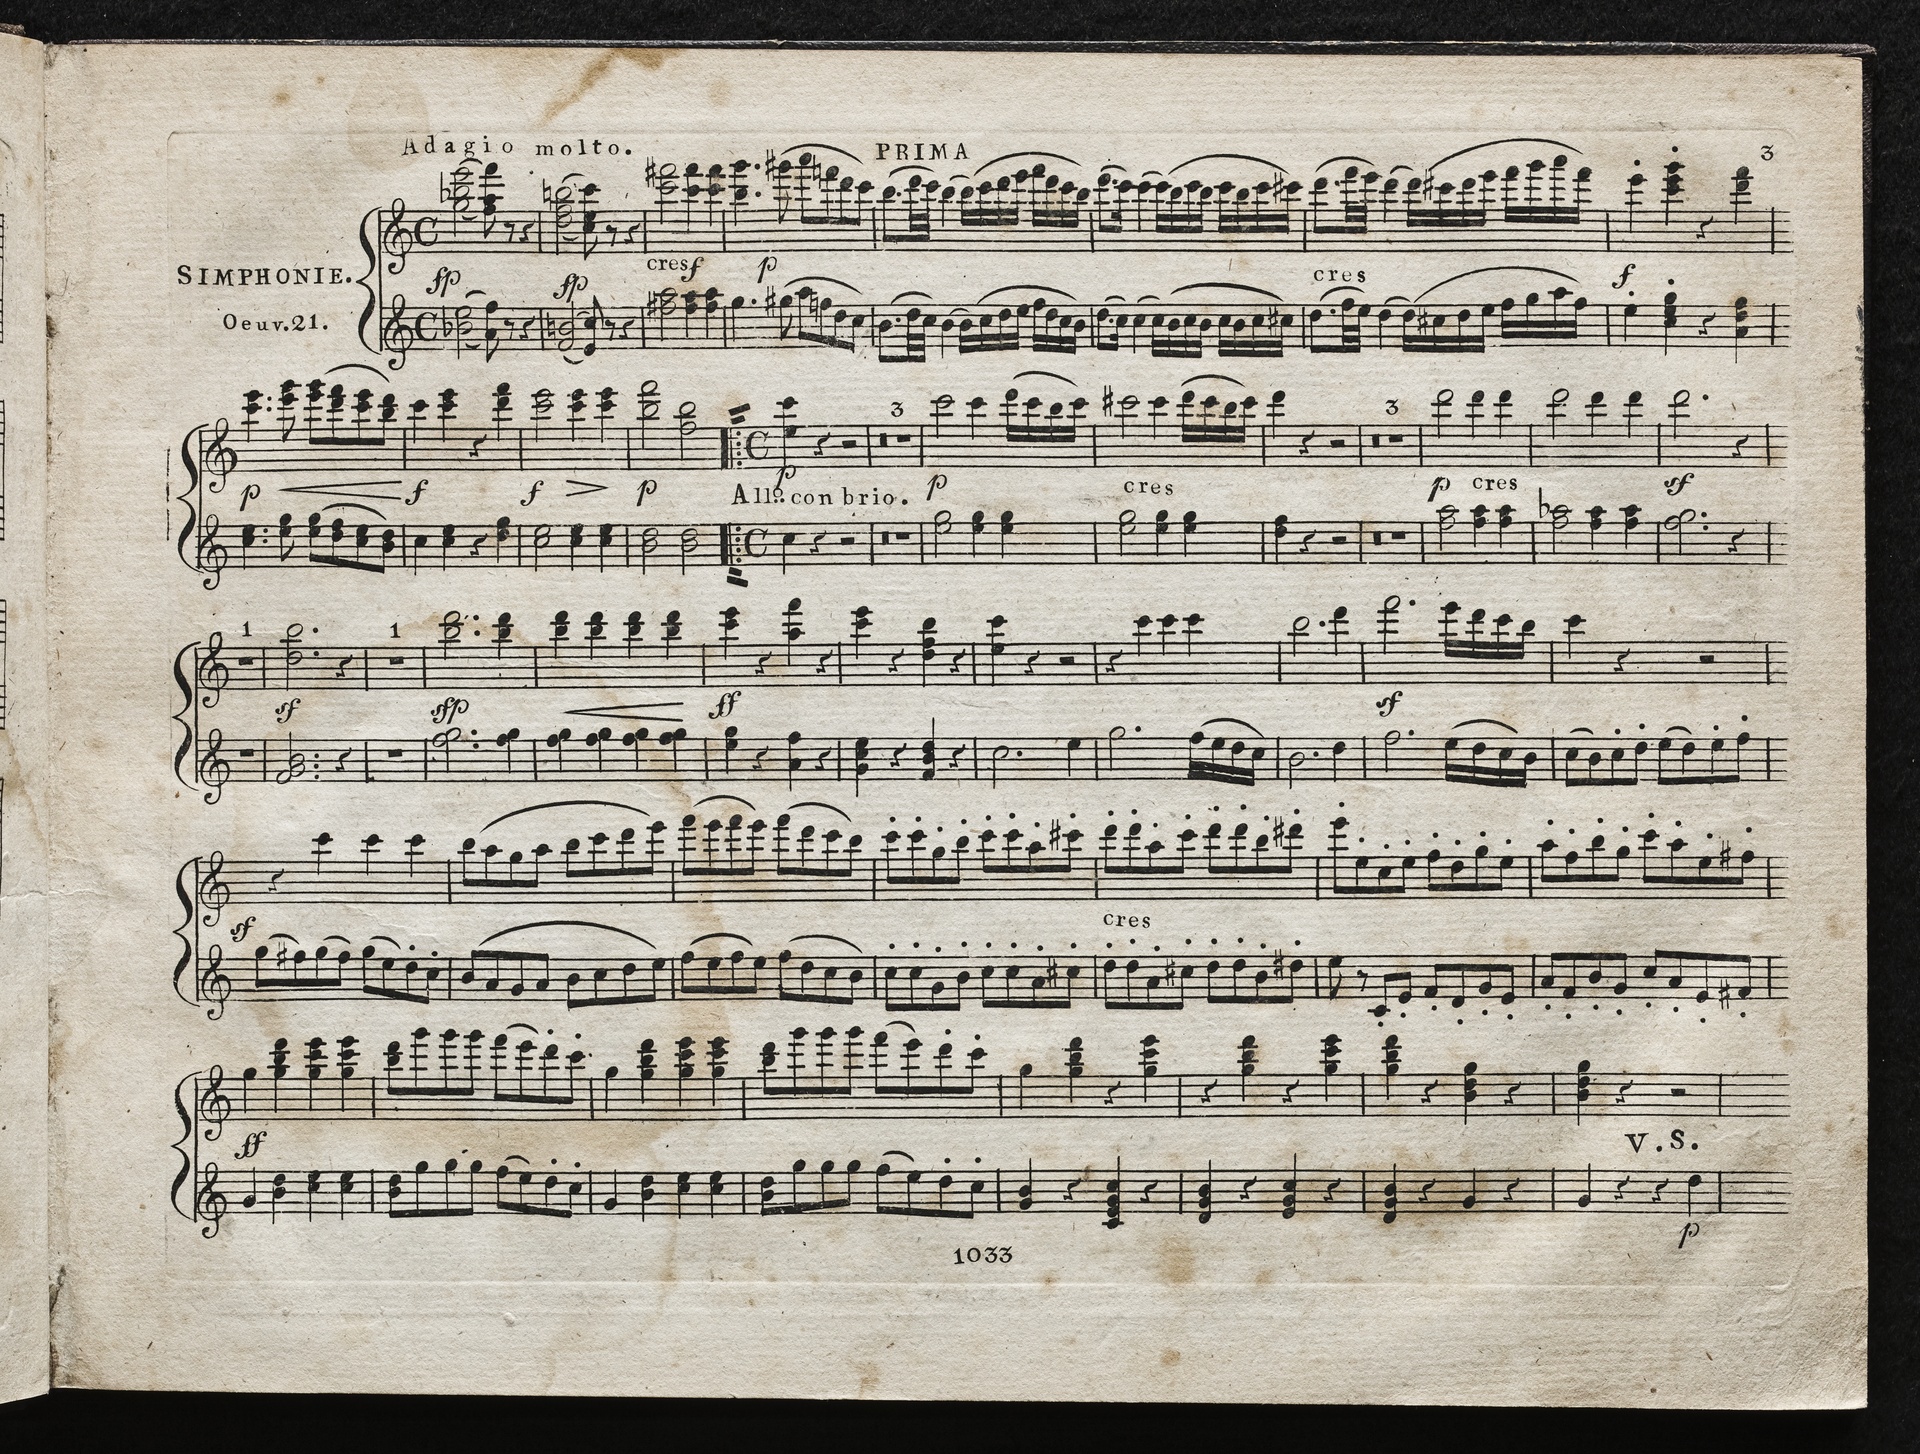 Adagio molto. PRIMA 3
SIMPHONIE.
Oeuv.21.
fp fp cresf p cres f
3 3
p f f p p p cres p cres sf
Allo. con brio.
1 1
sf sfp ff sf
sf cres
ff
V.S.
p
1033